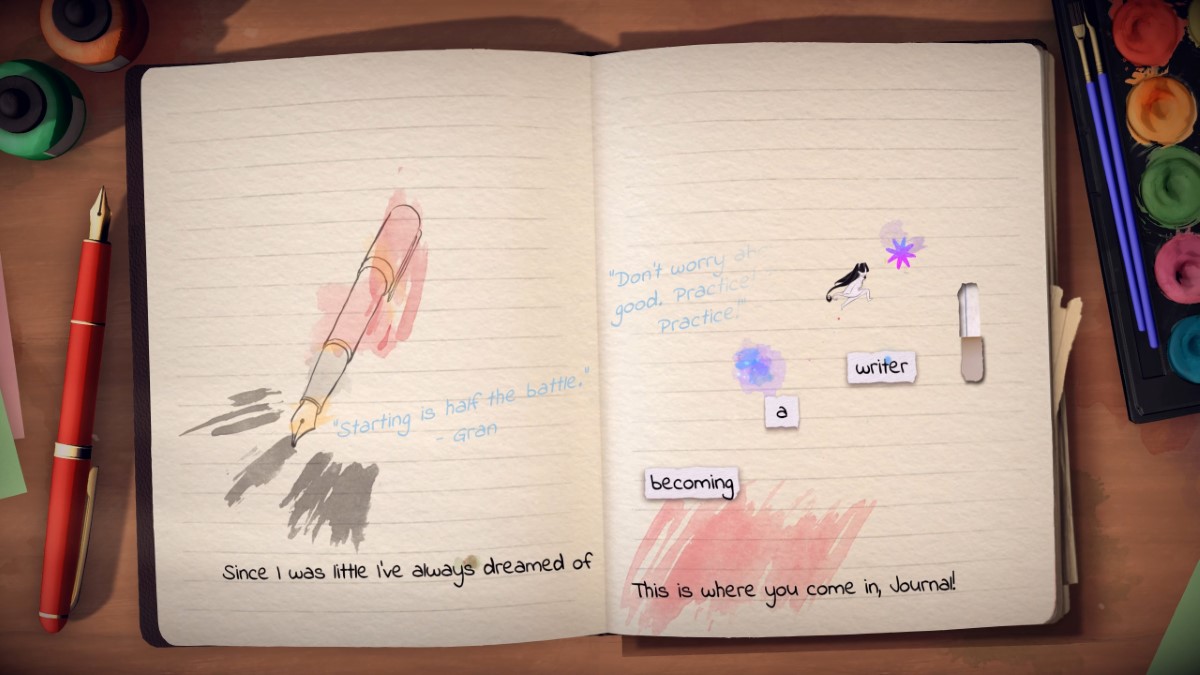 "Starting is half the battle."
- Gran
Since I was little I've always dreamed of
"Don't worry
good. Practice!
Practice!"
writer
a
becoming
This is where you come in, Journal!